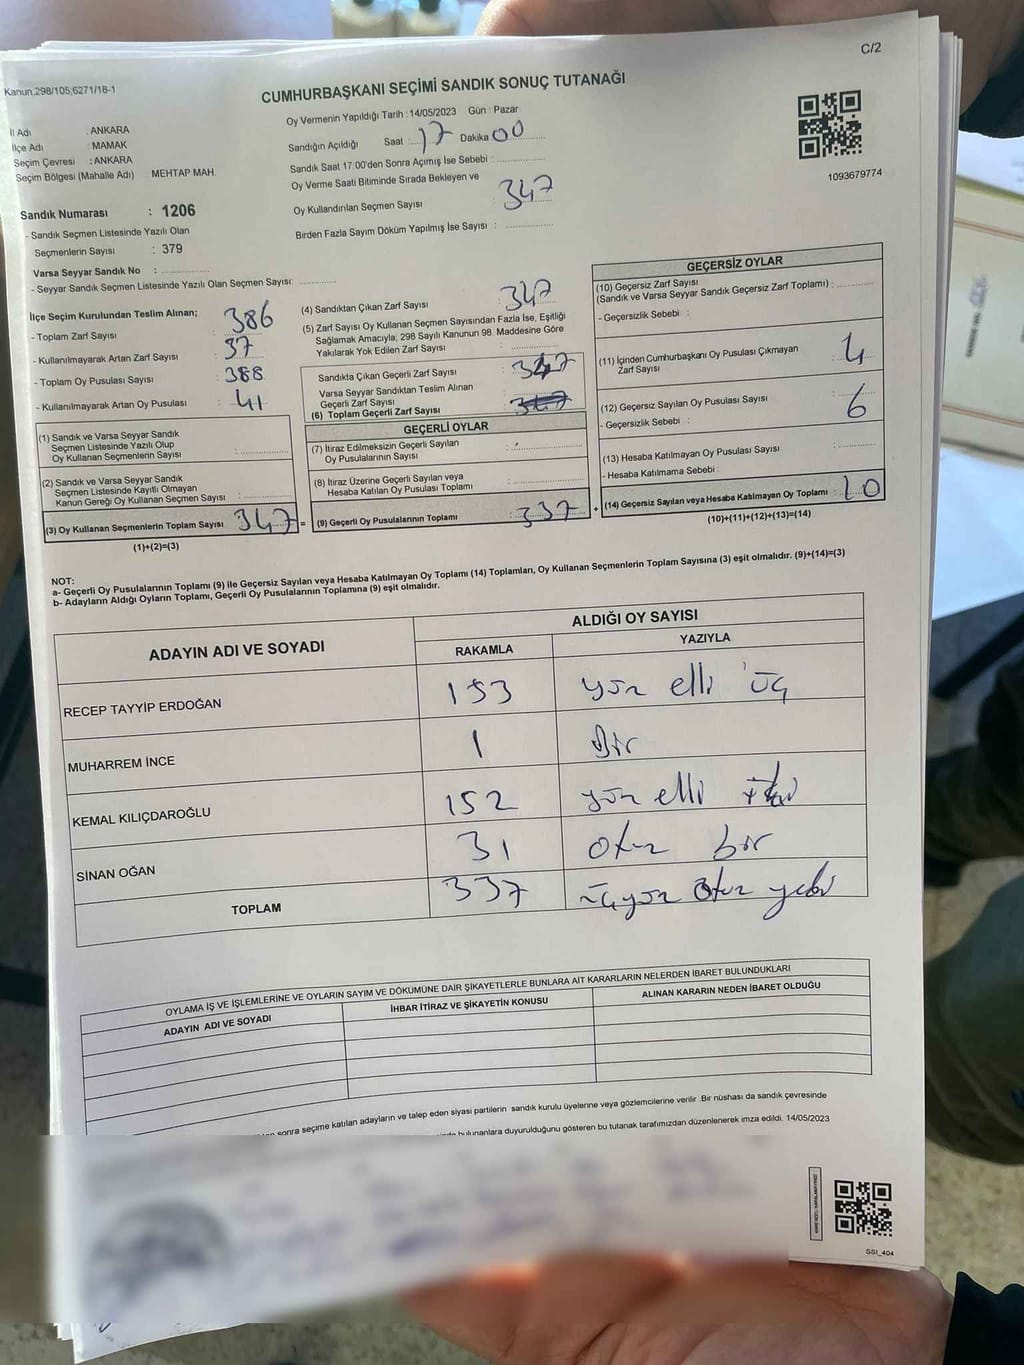 C/2
Kanun.298/105;6271/18-1
CUMHURBAŞKANI SEÇİMİ SANDIK SONUÇ TUTANAĞI
Oy Vermenin Yapıldığı Tarih :14/05/2023 Gün : Pazar
İl Adı : ANKARA
İlçe Adı : MAMAK
Seçim Çevresi : ANKARA
Seçim Bölgesi (Mahalle Adı) : MEHTAP MAH.
Sandığın Açıldığı Saat : 17 Dakika 00
Sandık Saat 17.00'den Sonra Açımış İse Sebebi :
Oy Verme Saati Bitiminde Sırada Bekleyen ve
Oy Kullandırılan Seçmen Sayısı : 347
Birden Fazla Sayım Döküm Yapılmış İse Sayısı :
1093679774
Sandık Numarası : 1206
- Sandık Seçmen Listesinde Yazılı Olan
Seçmenlerin Sayısı : 379
Varsa Seyyar Sandık No :
- Seyyar Sandık Seçmen Listesinde Yazılı Olan Seçmen Sayısı:
İlçe Seçim Kurulundan Teslim Alınan;
- Toplam Zarf Sayısı : 386
- Kullanılmayarak Artan Zarf Sayısı : 37
- Toplam Oy Pusulası Sayısı : 388
- Kullanılmayarak Artan Oy Pusulası : 41
(1) Sandık ve Varsa Seyyar Sandık
Seçmen Listesinde Yazılı Olup
Oy Kullanan Seçmenlerin Sayısı :
(2) Sandık ve Varsa Seyyar Sandık
Seçmen Listesinde Kayıtlı Olmayan
Kanun Gereği Oy Kullanan Seçmen Sayısı :
(3) Oy Kullanan Seçmenlerin Toplam Sayısı : 347 =
(1)+(2)=(3)
(4) Sandıktan Çıkan Zarf Sayısı : 347
(5) Zarf Sayısı Oy Kullanan Seçmen Sayısından Fazla İse, Eşitliği
Sağlamak Amacıyla; 298 Sayılı Kanunun 98. Maddesine Göre
Yakılarak Yok Edilen Zarf Sayısı :
Sandıkta Çıkan Geçerli Zarf Sayısı : 347
Varsa Seyyar Sandıktan Teslim Alınan
Geçerli Zarf Sayısı :
(6) Toplam Geçerli Zarf Sayısı : 347
GEÇERLİ OYLAR
(7) İtiraz Edilmeksizin Geçerli Sayılan
Oy Pusulalarının Sayısı :
(8) İtiraz Üzerine Geçerli Sayılan veya
Hesaba Katılan Oy Pusulası Toplamı :
(9) Geçerli Oy Pusulalarının Toplamı : 337 +
GEÇERSİZ OYLAR
(10) Geçersiz Zarf Sayısı
(Sandık ve Varsa Seyyar Sandık Geçersiz Zarf Toplamı) :
- Geçersizlik Sebebi :
(11) İçinden Cumhurbaşkanı Oy Pusulası Çıkmayan
Zarf Sayısı : 4
(12) Geçersiz Sayılan Oy Pusulası Sayısı : 6
- Geçersizlik Sebebi :
(13) Hesaba Katılmayan Oy Pusulası Sayısı :
- Hesaba Katılmama Sebebi :
(14) Geçersiz Sayılan veya Hesaba Katılmayan Oy Toplamı : 10
(10)+(11)+(12)+(13)=(14)
NOT:
a- Geçerli Oy Pusulalarının Toplamı (9) ile Geçersiz Sayılan veya Hesaba Katılmayan Oy Toplamı (14) Toplamları, Oy Kullanan Seçmenlerin Toplam Sayısına (3) eşit olmalıdır. (9)+(14)=(3)
b- Adayların Aldığı Oyların Toplamı, Geçerli Oy Pusulalarının Toplamına (9) eşit olmalıdır.
ADAYIN ADI VE SOYADI
ALDIĞI OY SAYISI
RAKAMLA YAZIYLA
RECEP TAYYİP ERDOĞAN 153 yüz elli üç
MUHARREM İNCE 1 Bir
KEMAL KILIÇDAROĞLU 152 yüz elli iki
SİNAN OĞAN 31 otuz bir
TOPLAM 337 üçyüz otuz yedi
OYLAMA İŞ VE İŞLEMLERİNE VE OYLARIN SAYIM VE DÖKÜMÜNE DAİR ŞİKAYETLERLE BUNLARA AİT KARARLARIN NELERDEN İBARET BULUNDUKLARI
ADAYIN ADI VE SOYADI İHBAR İTİRAZ VE ŞİKAYETİN KONUSU ALINAN KARARIN NEDEN İBARET OLDUĞU
sonra seçime katılan adayların ve talep eden siyasi partilerin sandık kurulu üyelerine veya gözlemcilerine verilir. Bir nüshası da sandık çevresinde
bulunanlara duyurulduğunu gösteren bu tutanak tarafımızdan düzenlenerek imza edildi. 14/05/2023
SSI_404